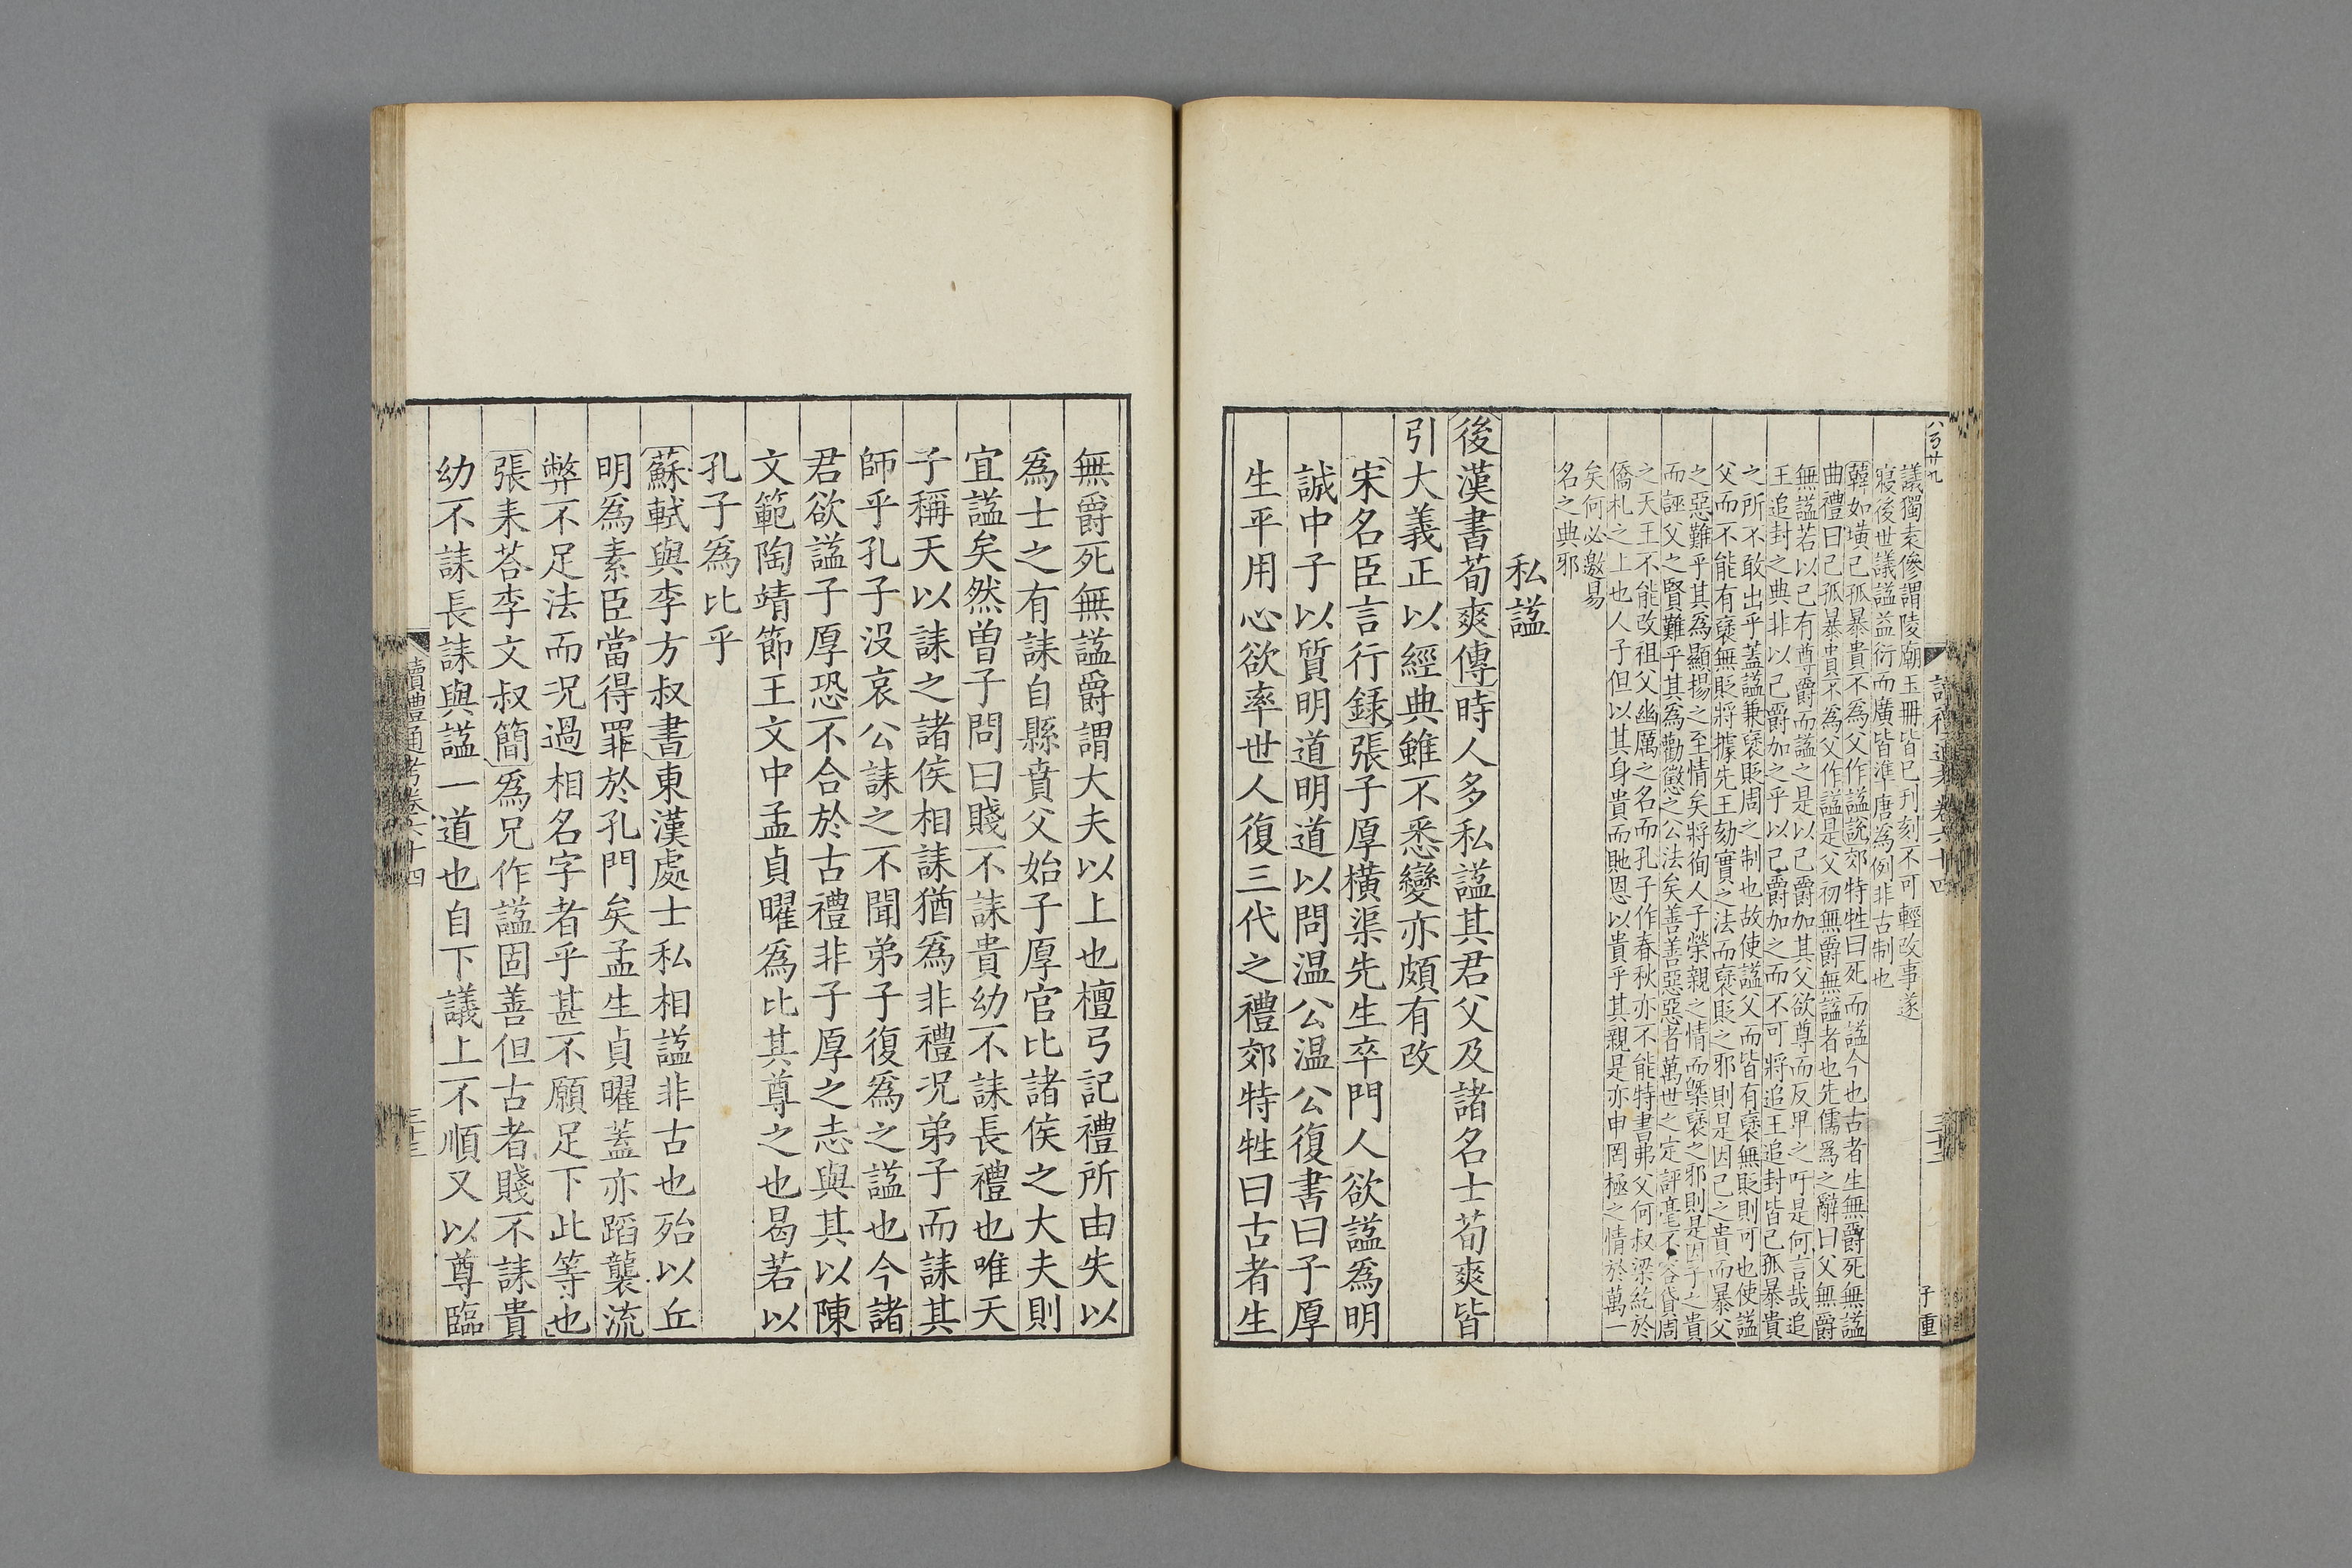 議獨孤慘謂陵廟玉冊皆已刊刻不可輕改事遂
寢後世議諡益衍而廣皆準唐為例非古制也
韓如璜已孤暴貴不為父作諡說郊特牲曰死而諡今也古者生無爵死無諡
曲禮曰已孤暴貴不為父作諡是父初無爵無諡者也先儒爲之辭曰父無爵
無諡若以已有尊爵而諡之是以已爵加其父欲尊而反卑之吁是何言哉追
王追封之典非以已爵加之乎以已爵加之而不可將追王追封皆已孤暴貴
之所不敢出乎蓋諡兼襃貶周之制也故使諡父而皆有襃無貶則可也使諡
父而不能有襃無貶將據先王劾實之法而襃貶之邪則是因已之貴而暴父
之惡難乎其為顯揚之至情矣將徇人子榮親之情而槩襃之邪則是因子之貴
而誣父之賢難乎其爲勸懲之公法矣善善惡惡者萬世之定評毫不容貸周
之天王不能改祖父幽厲之名而孔子作春秋亦不能特書弗父何叔梁紇於
僑札之上也人子但以其身貴而貤恩以貴乎其親是亦申罔極之情於萬一
矣何必邀易
名之典邪
私諡
後漢書荀爽傳時人多私諡其君父及諸名士荀爽皆
引大義正以經典雖不悉變亦頗有改
宋名臣言行録張子厚橫渠先生卒門人欲諡爲明
誠中子以質明道明道以問温公温公復書曰子厚
生平用心欲率世人復三代之禮郊特牲曰古者生
無爵死無諡爵謂大夫以上也檀弓記禮所由失以
爲士之有誄自縣賁父始子厚官比諸侯之大夫則
宜諡矣然曾子問曰賤不誄貴幼不誄長禮也唯天
子稱天以誄之諸侯相誄猶爲非禮況弟子而誄其
師乎孔子沒哀公誄之不聞弟子復爲之諡也今諸
君欲諡子厚恐不合於古禮非子厚之志與其以陳
文範陶靖節王文中孟貞曜爲比其尊之也曷若以
孔子爲比乎
蘇軾與李方叔書東漢處士私相諡非古也殆以丘
明爲素臣當得罪於孔門矣孟生貞曜蓋亦蹈襲流
弊不足法而況過相名字者乎甚不願足下此等也
張耒荅李文叔簡爲兄作諡固善但古者賤不誄貴
幼不誄長誄與諡一道也自下議上不順又以尊臨
讀禮通考卷六十四